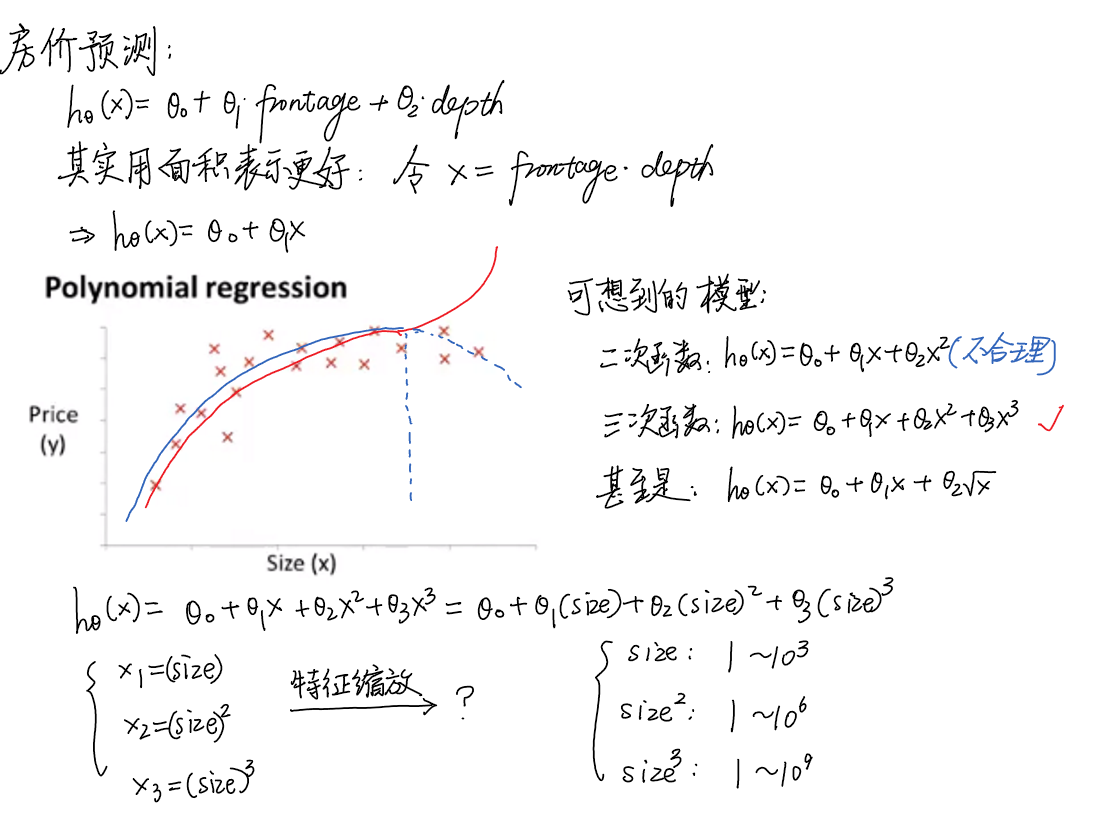 房价预测:
hθ(x) = θ₀ + θ₁· frontage + θ₂· depth
其实用面积表示更好: 令 x = frontage · depth
⇒ hθ(x) = θ₀ + θ₁x
Polynomial regression
Price
(y)
Size (x)
可想到的模型:
二次函数: hθ(x) = θ₀ + θ₁x + θ₂x² (不合理)
三次函数: hθ(x) = θ₀ + θ₁x + θ₂x² + θ₃x³ ✓
甚至是: hθ(x) = θ₀ + θ₁x + θ₂√x
hθ(x) = θ₀ + θ₁x + θ₂x² + θ₃x³ = θ₀ + θ₁(size) + θ₂(size)² + θ₃(size)³
x₁ = (size)
x₂ = (size)²
x₃ = (size)³
特征缩放
?
size: 1 ~ 10³
size²: 1 ~ 10⁶
size³: 1 ~ 10⁹